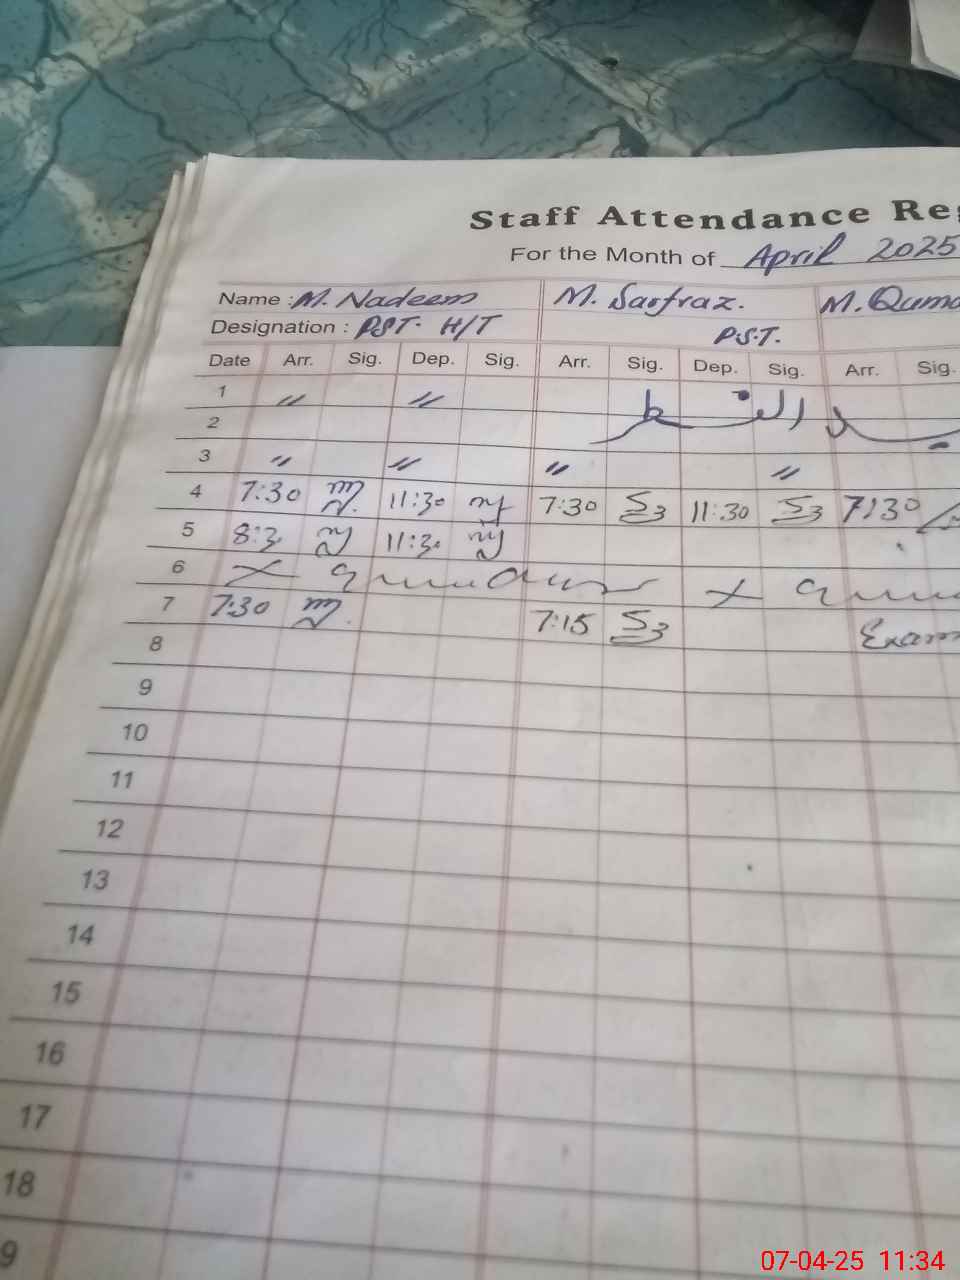 Staff Attendance Reg
For the Month of April 2025
Name : M. Nadeem M. Sarfraz. M. Quma
Designation : PST. H/T P.S.T.
Date Arr. Sig. Dep. Sig. Arr. Sig. Dep. Sig. Arr. Sig.
1 〃 〃
2 عید الفطر
3 〃 〃 〃 〃
4 7:30 11:30 7:30 11:30 7:30
5 8:3 11:30
6
7 7:30 7:15 Exam
8
9
10
11
12
13
14
15
16
17
18
9
07-04-25 11:34